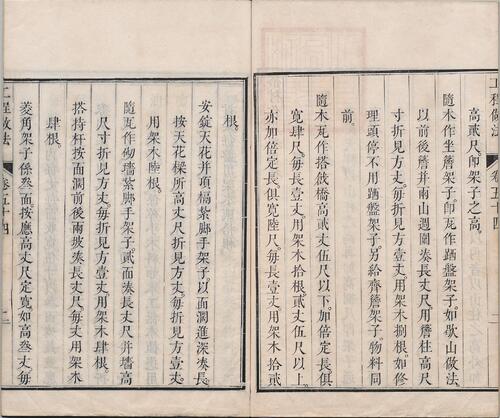 工程做法
卷五十四
高貳尺卽架子之高
隨木作坐簷架子卽瓦作踏盤架子如歇山做法
以前後簷并兩山週圍湊長丈尺用簷柱高尺
寸折見方丈每折見方壹丈用架木捌根如修
理頭停不用踏盤架子另給齊簷架子物料同
前
隨木瓦作搭戧橋高貳丈伍尺以下加倍定長俱
寬肆尺每長壹丈用架木拾根貳丈伍尺以上
亦加倍定長俱寬陸尺每長壹丈用架木拾貳
根
安錠天花并項槅紮脚手架子以面濶進深湊長
按天花樑所高丈尺折見方丈每折見方壹丈
用架木陸根
隨瓦作砌墻紮脚手架子貳面湊長丈尺并墻高
尺寸折見方丈每折見方壹丈用架木肆根
搭持杆按面濶前後兩坡湊長丈尺每丈用架木
肆根
菱角架子係叁面按應高丈尺定寬如高叁丈每
工程做法
卷五十四
二